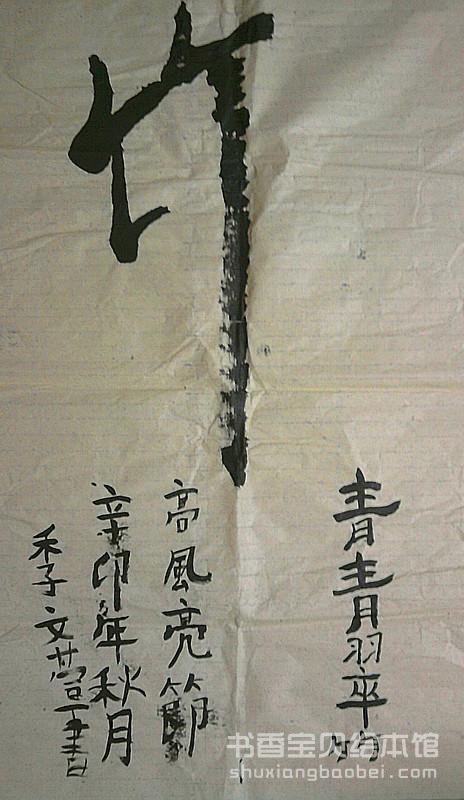 竹
青青翠竹
高風亮節
辛卯年秋月
季文萱書
书香宝贝绘本馆
shuxiangbaobei.com